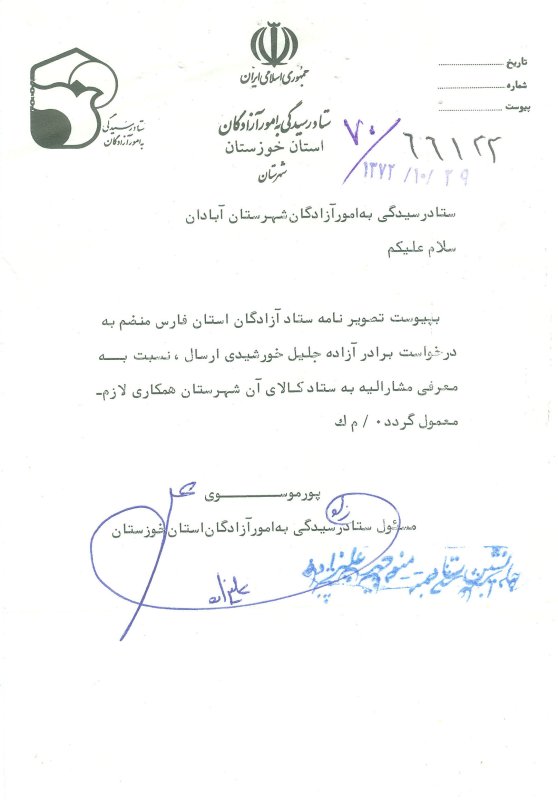 جمهوری اسلامی ایران
تاریخ
شماره
پیوست
ستاد رسیدگی
به امور آزادگان
ستاد رسیدگی به امور آزادگان
استان خوزستان
شهرستان
۷۰/ ۶۶۱۲۲
۱۳۷۲/۱۰/۲۹
ستاد رسیدگی به امور آزادگان شهرستان آبادان
سلام علیکم
بپیوست تصویر نامه ستاد آزادگان استان فارس منضم به
درخواست برادر آزاده جلیل خورشیدی ارسال ، نسبت به
معرفی مشارالیه به ستاد کالای آن شهرستان همکاری لازم-
معمول گردد۰ / م ك
پورموسوی
مسئول ستاد رسیدگی به امور آزادگان استان خوزستان
علیزاده